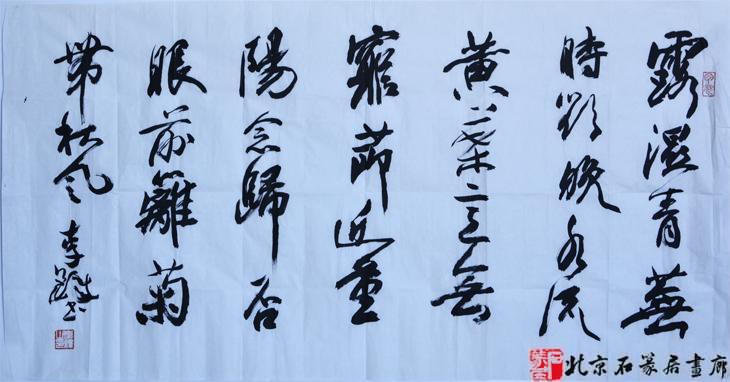 露湿青蕪
時欲晚水流
黄葉意無
窮節近重
陽念歸否
眼前籬菊
帶秋風 李
北京石篆居畫廊